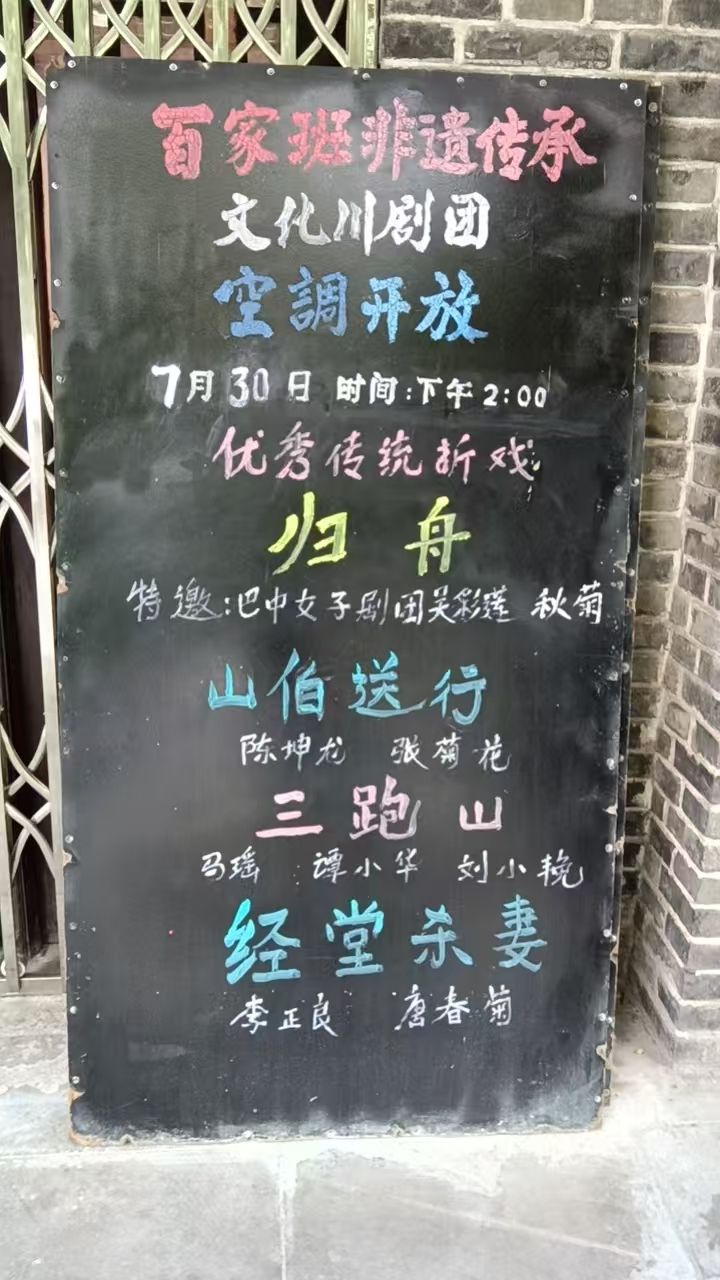 百家班非遗传承
文化川剧团
空調开放
7月30日 时间:下午2:00
优秀传统折戏
归舟
特邀:巴中女子剧团吴彩莲 秋菊
山伯送行
陈坤龙 张菊花
三跑山
马瑶 谭小华 刘小艳
经堂杀妻
李正良 唐春菊